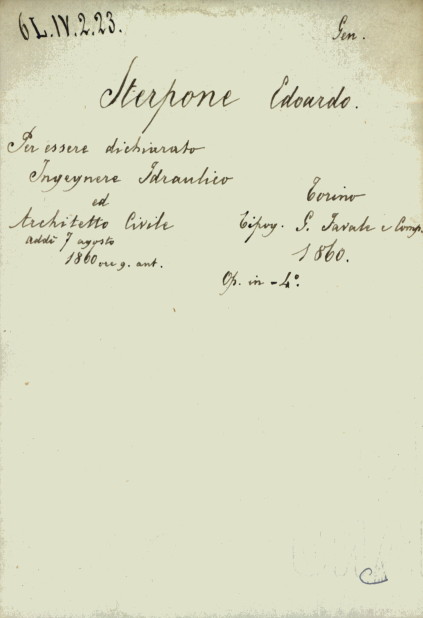 6 L.IV.2.23.
Gen.
Sterpone Edoardo.
Per essere dichiarato
Ingegnere Idraulico
ed
Architetto Civile
addì 7 agosto
1860 ore 9. ant.
Torino
Tipog. G. Favale e Comp.
1860.
Op. in-4°.